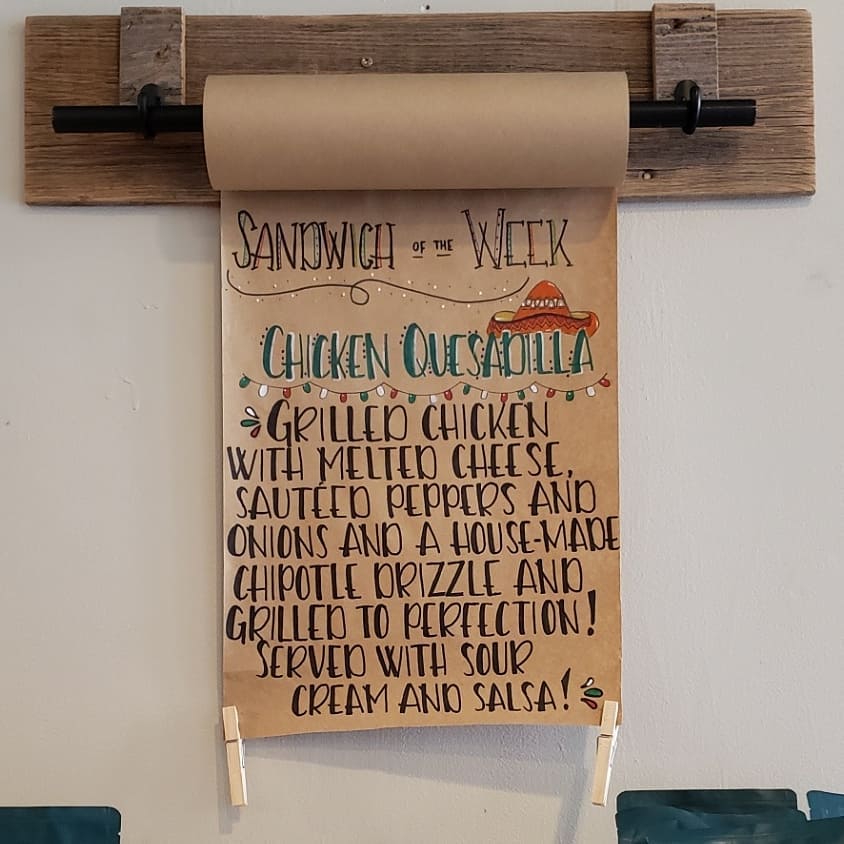 SANDWICH OF THE WEEK
CHICKEN QUESADILLA
GRILLED CHICKEN
WITH MELTED CHEESE,
SAUTÉED PEPPERS AND
ONIONS AND A HOUSE-MADE
CHIPOTLE DRIZZLE AND
GRILLED TO PERFECTION!
SERVED WITH SOUR
CREAM AND SALSA!